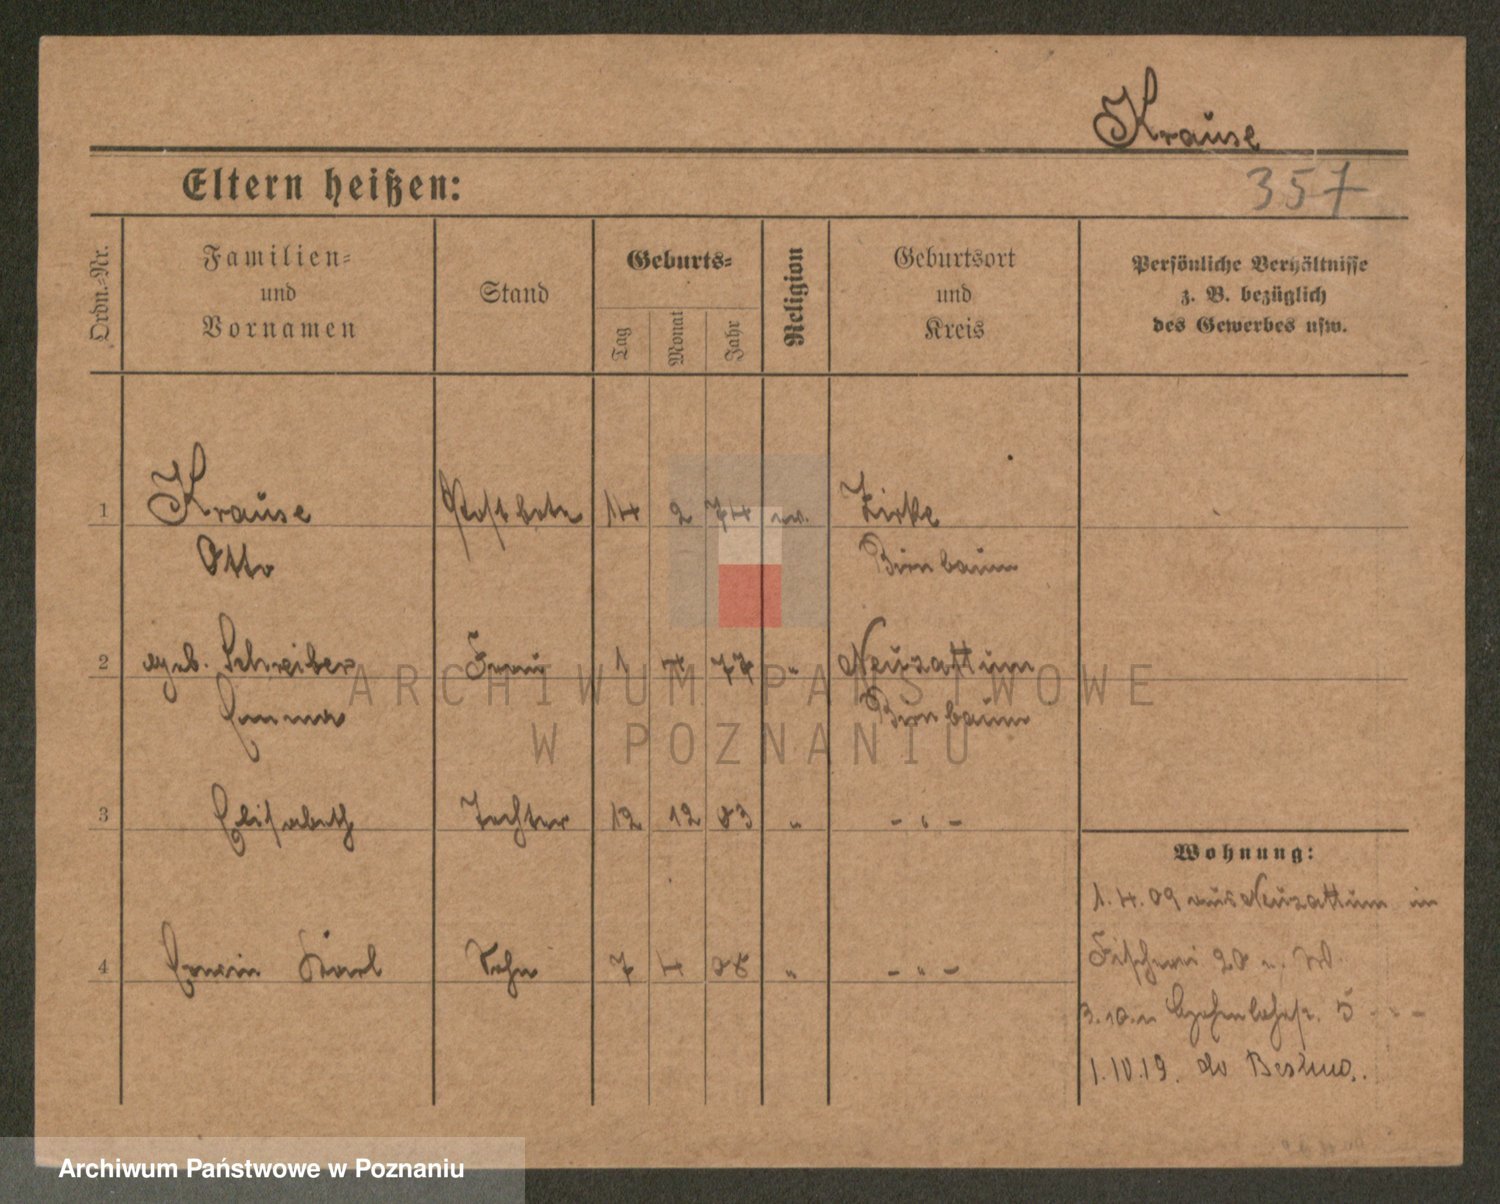 Krause
Eltern heißen:
357
Ordn.-Nr.
Familien-
und
Vornamen
Stand
Geburts-
Tag
Monat
Jahr
Religion
Geburtsort
und
Kreis
Persönliche Verhältnisse
z. B. bezüglich
des Gewerbes usw.
1 Krause Postbote 14 2 74 ev. Zirke
Otto Birnbaum
2 geb. Schreiber Frau 1 4 74 " Neuzattum
Emma Birnbaum
3 Elisabeth Tochter 12 12 03 " - " -
Wohnung:
1.4.09 aus Neuzattum in
4 Erwin Karl Sohn 7 4 08 " - " -
Fischerei 20
5 - " -
1.10.19.
ARCHIWUM PAŃSTWOWE
W POZNANIU
Archiwum Państwowe w Poznaniu